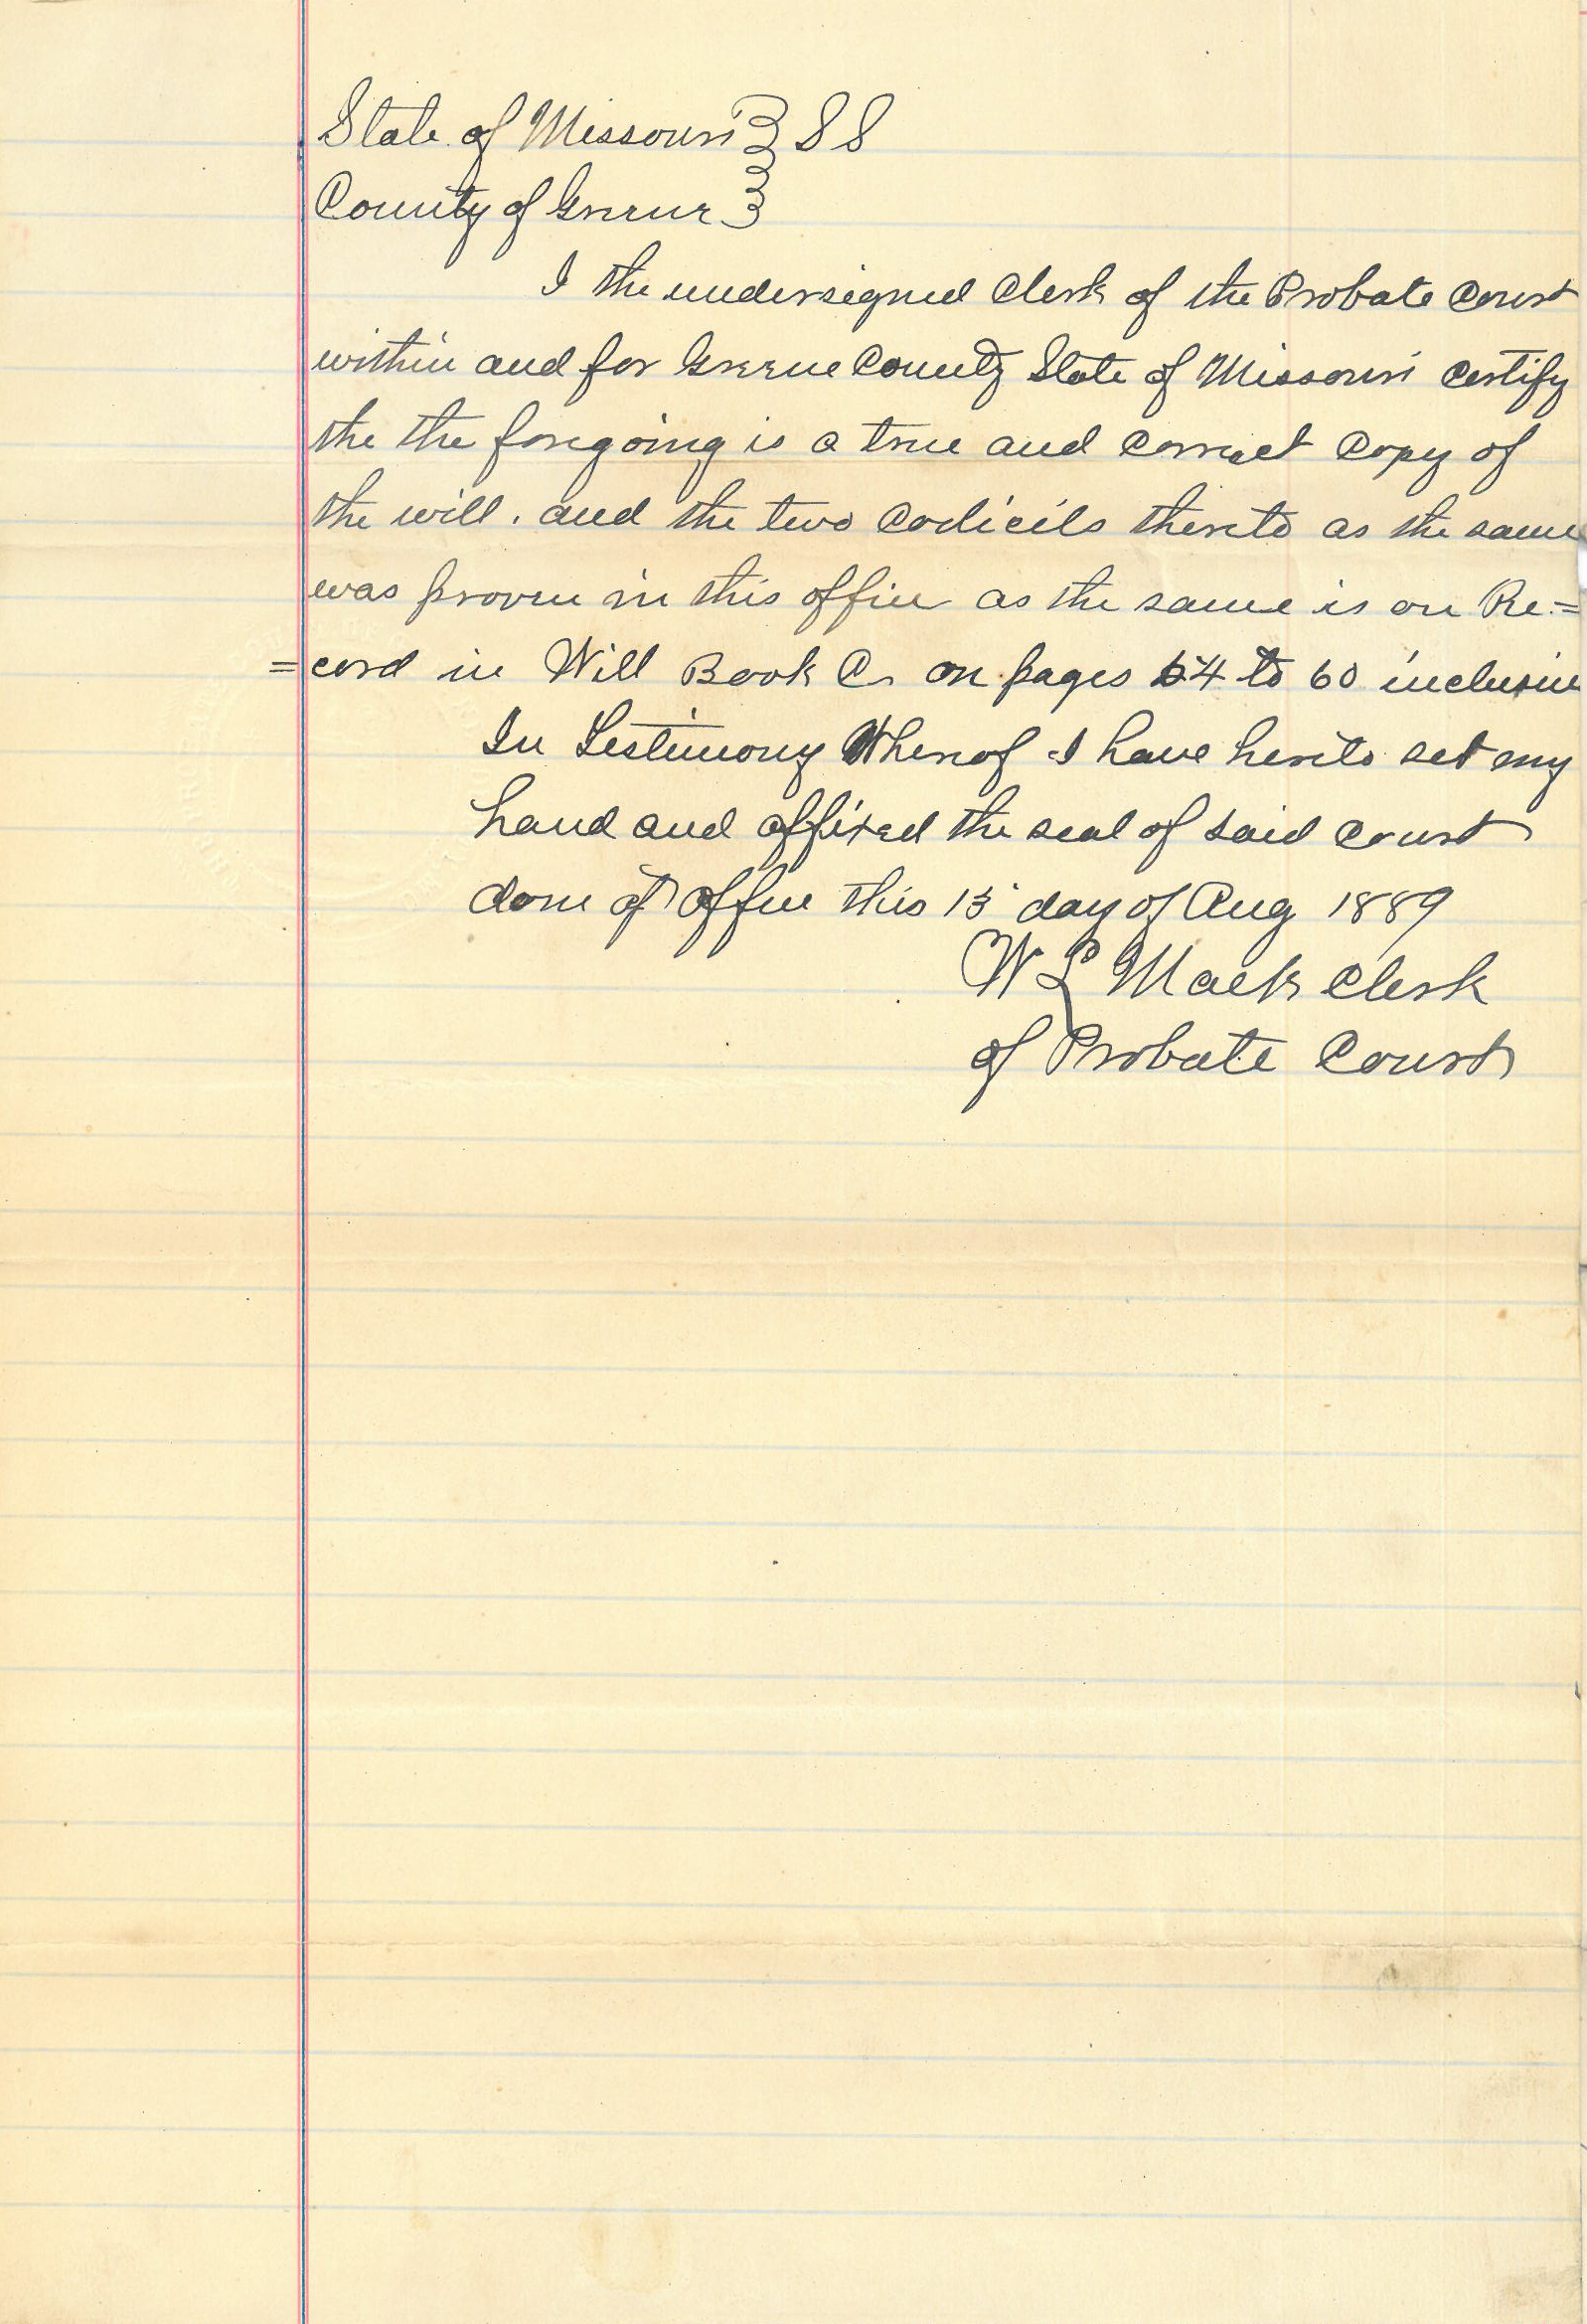 State of Missouri } SS
County of Greene }
I the undersigned Clerk of the Probate Court
within and for Greene County State of Missouri certify
the the foregoing is a true and correct copy of
the will. and the two codicils thereto as the same
was proven in this office as the same is on Re=
=cord in Will Book C on pages 54 to 60 inclusive
In Testimony Whereof I have hereto set my
hand and affixed the seal of said court
done at office this day of Aug 1889
W L Mack Clerk
of Probate Court